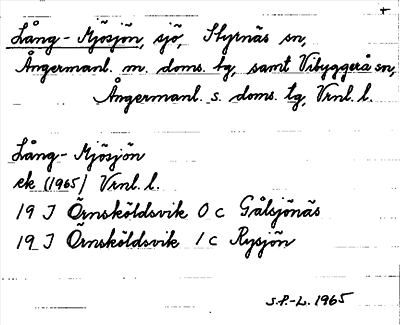 +
Lång-Mjösjön, sjö, Styrnäs sn,
Ångermanl. m. doms. tg, samt Vibyggerå sn,
Ångermanl. s. doms. tg, Vrnl. l.
Lång-Mjösjön
ek (1965) Vrnl. l.
19 J Örnsköldsvik 0 c Gålsjönäs
19 J Örnsköldsvik 1 c Rysjön
S.P.-L. 1965